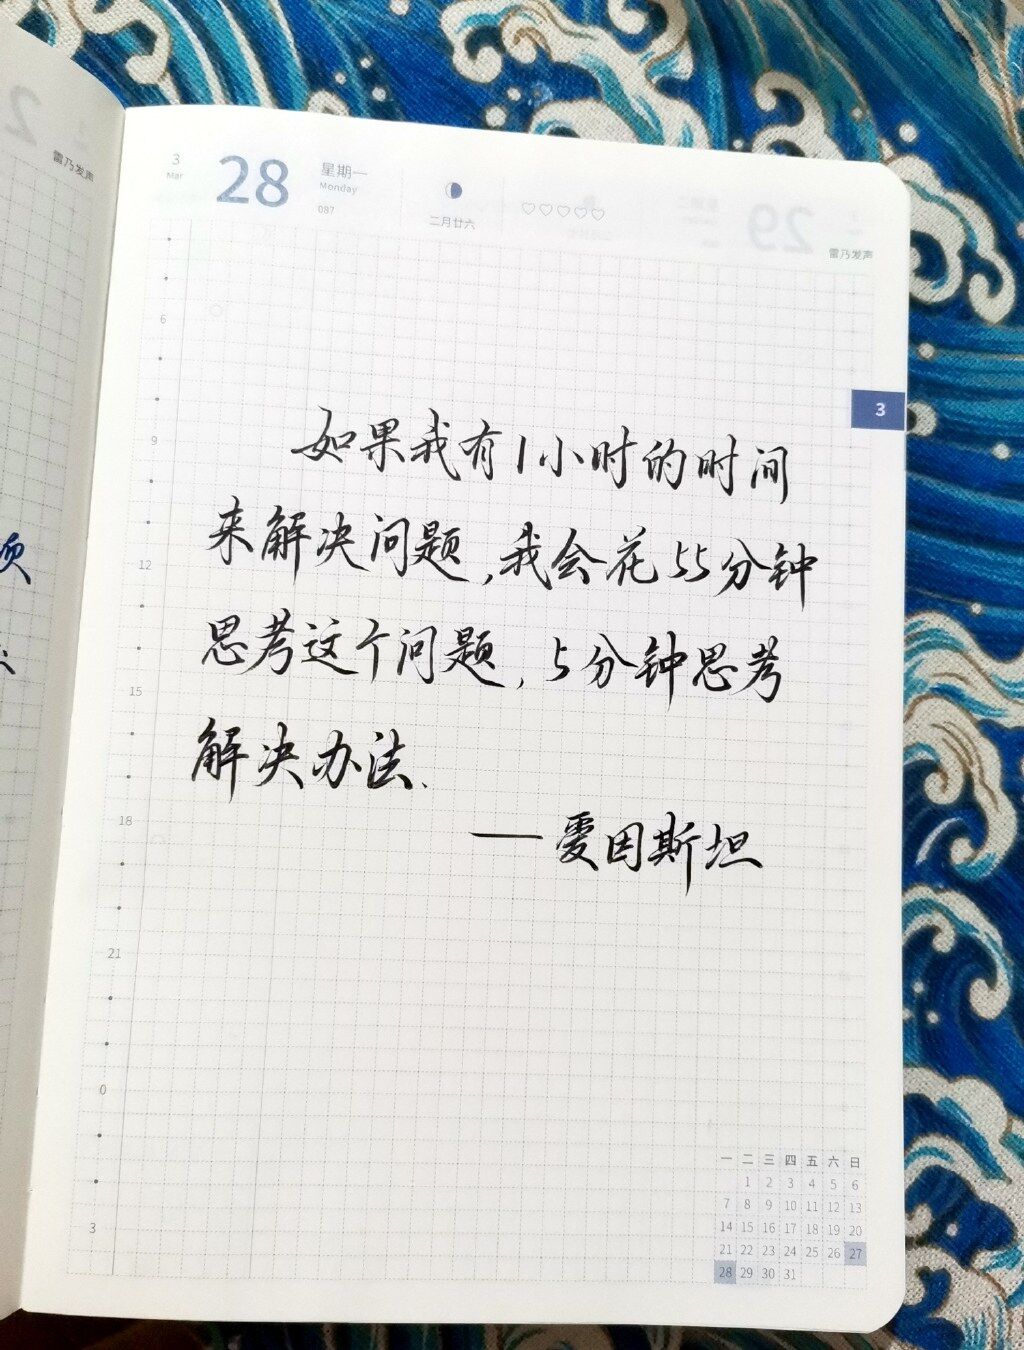 3
Mar
28
星期一
Monday
087
二月廿六
雷乃发声
雷乃发声
3
6
9
12
15
18
21
0
3
如果我有1小时的时间
来解决问题,我会花55分钟
思考这个问题,5分钟思考
解决办法.
——爱因斯坦
一 二 三 四 五 六 日
1 2 3 4 5 6
7 8 9 10 11 12 13
14 15 16 17 18 19 20
21 22 23 24 25 26 27
28 29 30 31